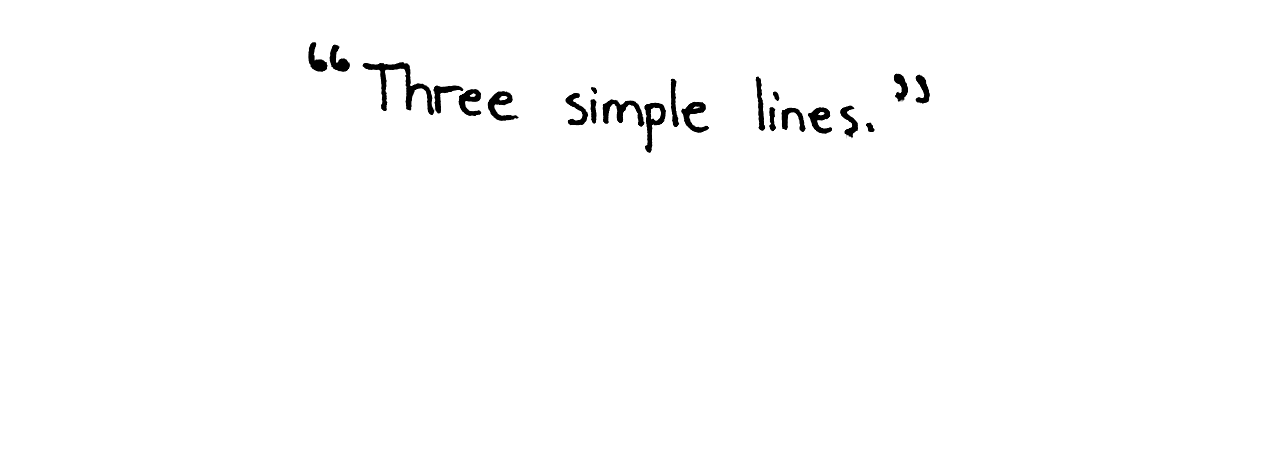 “Three simple lines.”